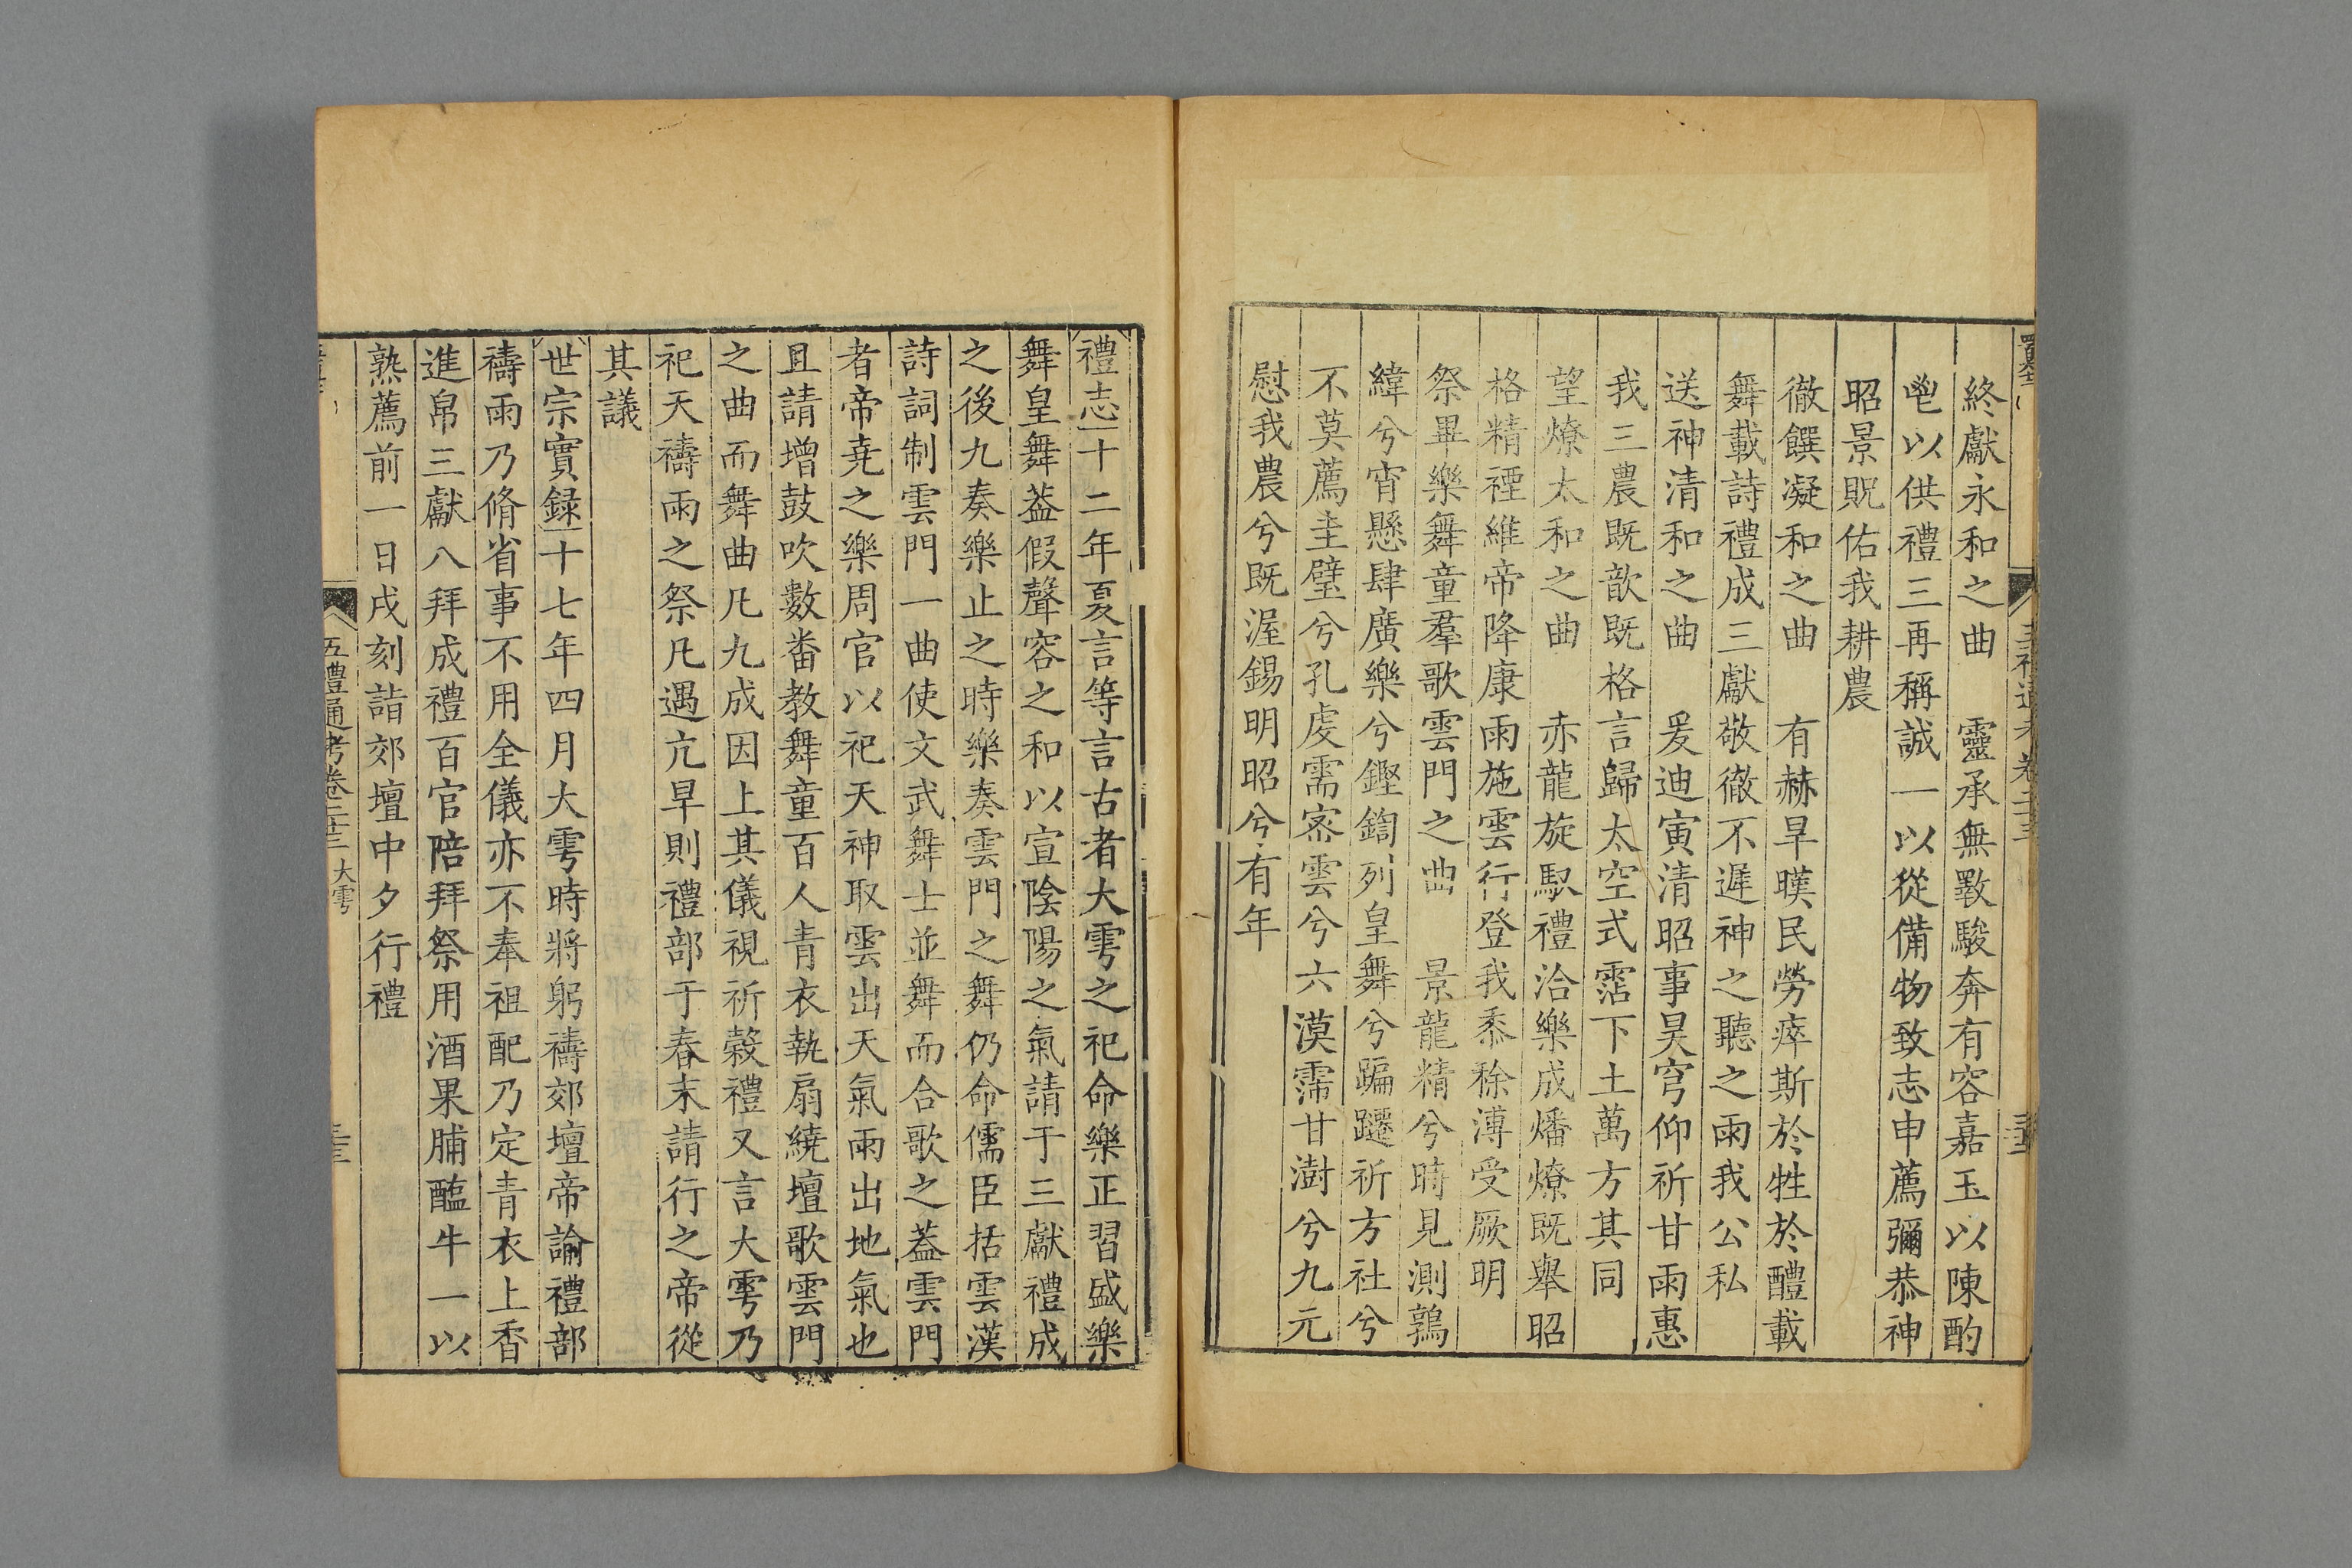 終獻永和之曲　靈承無斁駿奔有容嘉玉以陳酌
鬯以供禮三再稱誠一以從備物致志申薦彌恭神
昭景貺佑我耕農
徹饌凝和之曲　有赫旱暵民勞瘁斯於牲於醴載
舞載詩禮成三獻敬徹不遲神之聽之雨我公私
送神清和之曲　爰迪寅清昭事昊穹仰祈甘雨惠
我三農既歆既格言歸太空式霑下土萬方其同
望燎太和之曲　赤龍旋馭禮洽樂成燔燎既舉昭
格精禋維帝降康雨施雲行登我黍稌溥受厥明
祭畢樂舞童羣歌雲門之曲　景龍精兮時見測鶉
緯兮宵懸肆廣樂兮鏗鍧列皇舞兮蹁躚祈方社兮
不莫薦圭璧兮孔虔需宻雲兮六漠霈甘澍兮九元
慰我農兮既渥錫明昭兮有年
禮志十二年夏言等言古者大雩之祀命樂正習盛樂
舞皇舞葢假聲容之和以宣陰陽之氣請于三獻禮成
之後九奏樂止之時樂奏雲門之舞仍命儒臣括雲漢
詩詞制雲門一曲使文武舞士並舞而合歌之葢雲門
者帝堯之樂周官以祀天神取雲出天氣雨出地氣也
且請增鼓吹數番教舞童百人青衣執扇繞壇歌雲門
之曲而舞曲凡九成因上其儀視祈穀禮又言大雩乃
祀天禱雨之祭凡遇亢旱則禮部于春末請行之帝從
其議
世宗實録十七年四月大雩時將躬禱郊壇帝諭禮部
禱雨乃脩省事不用全儀亦不奉祖配乃定青衣上香
進帛三獻八拜成禮百官陪拜祭用酒果脯醢牛一以
熟薦前一日戌刻詣郊壇中夕行禮
五禮通考卷二十三　大雩